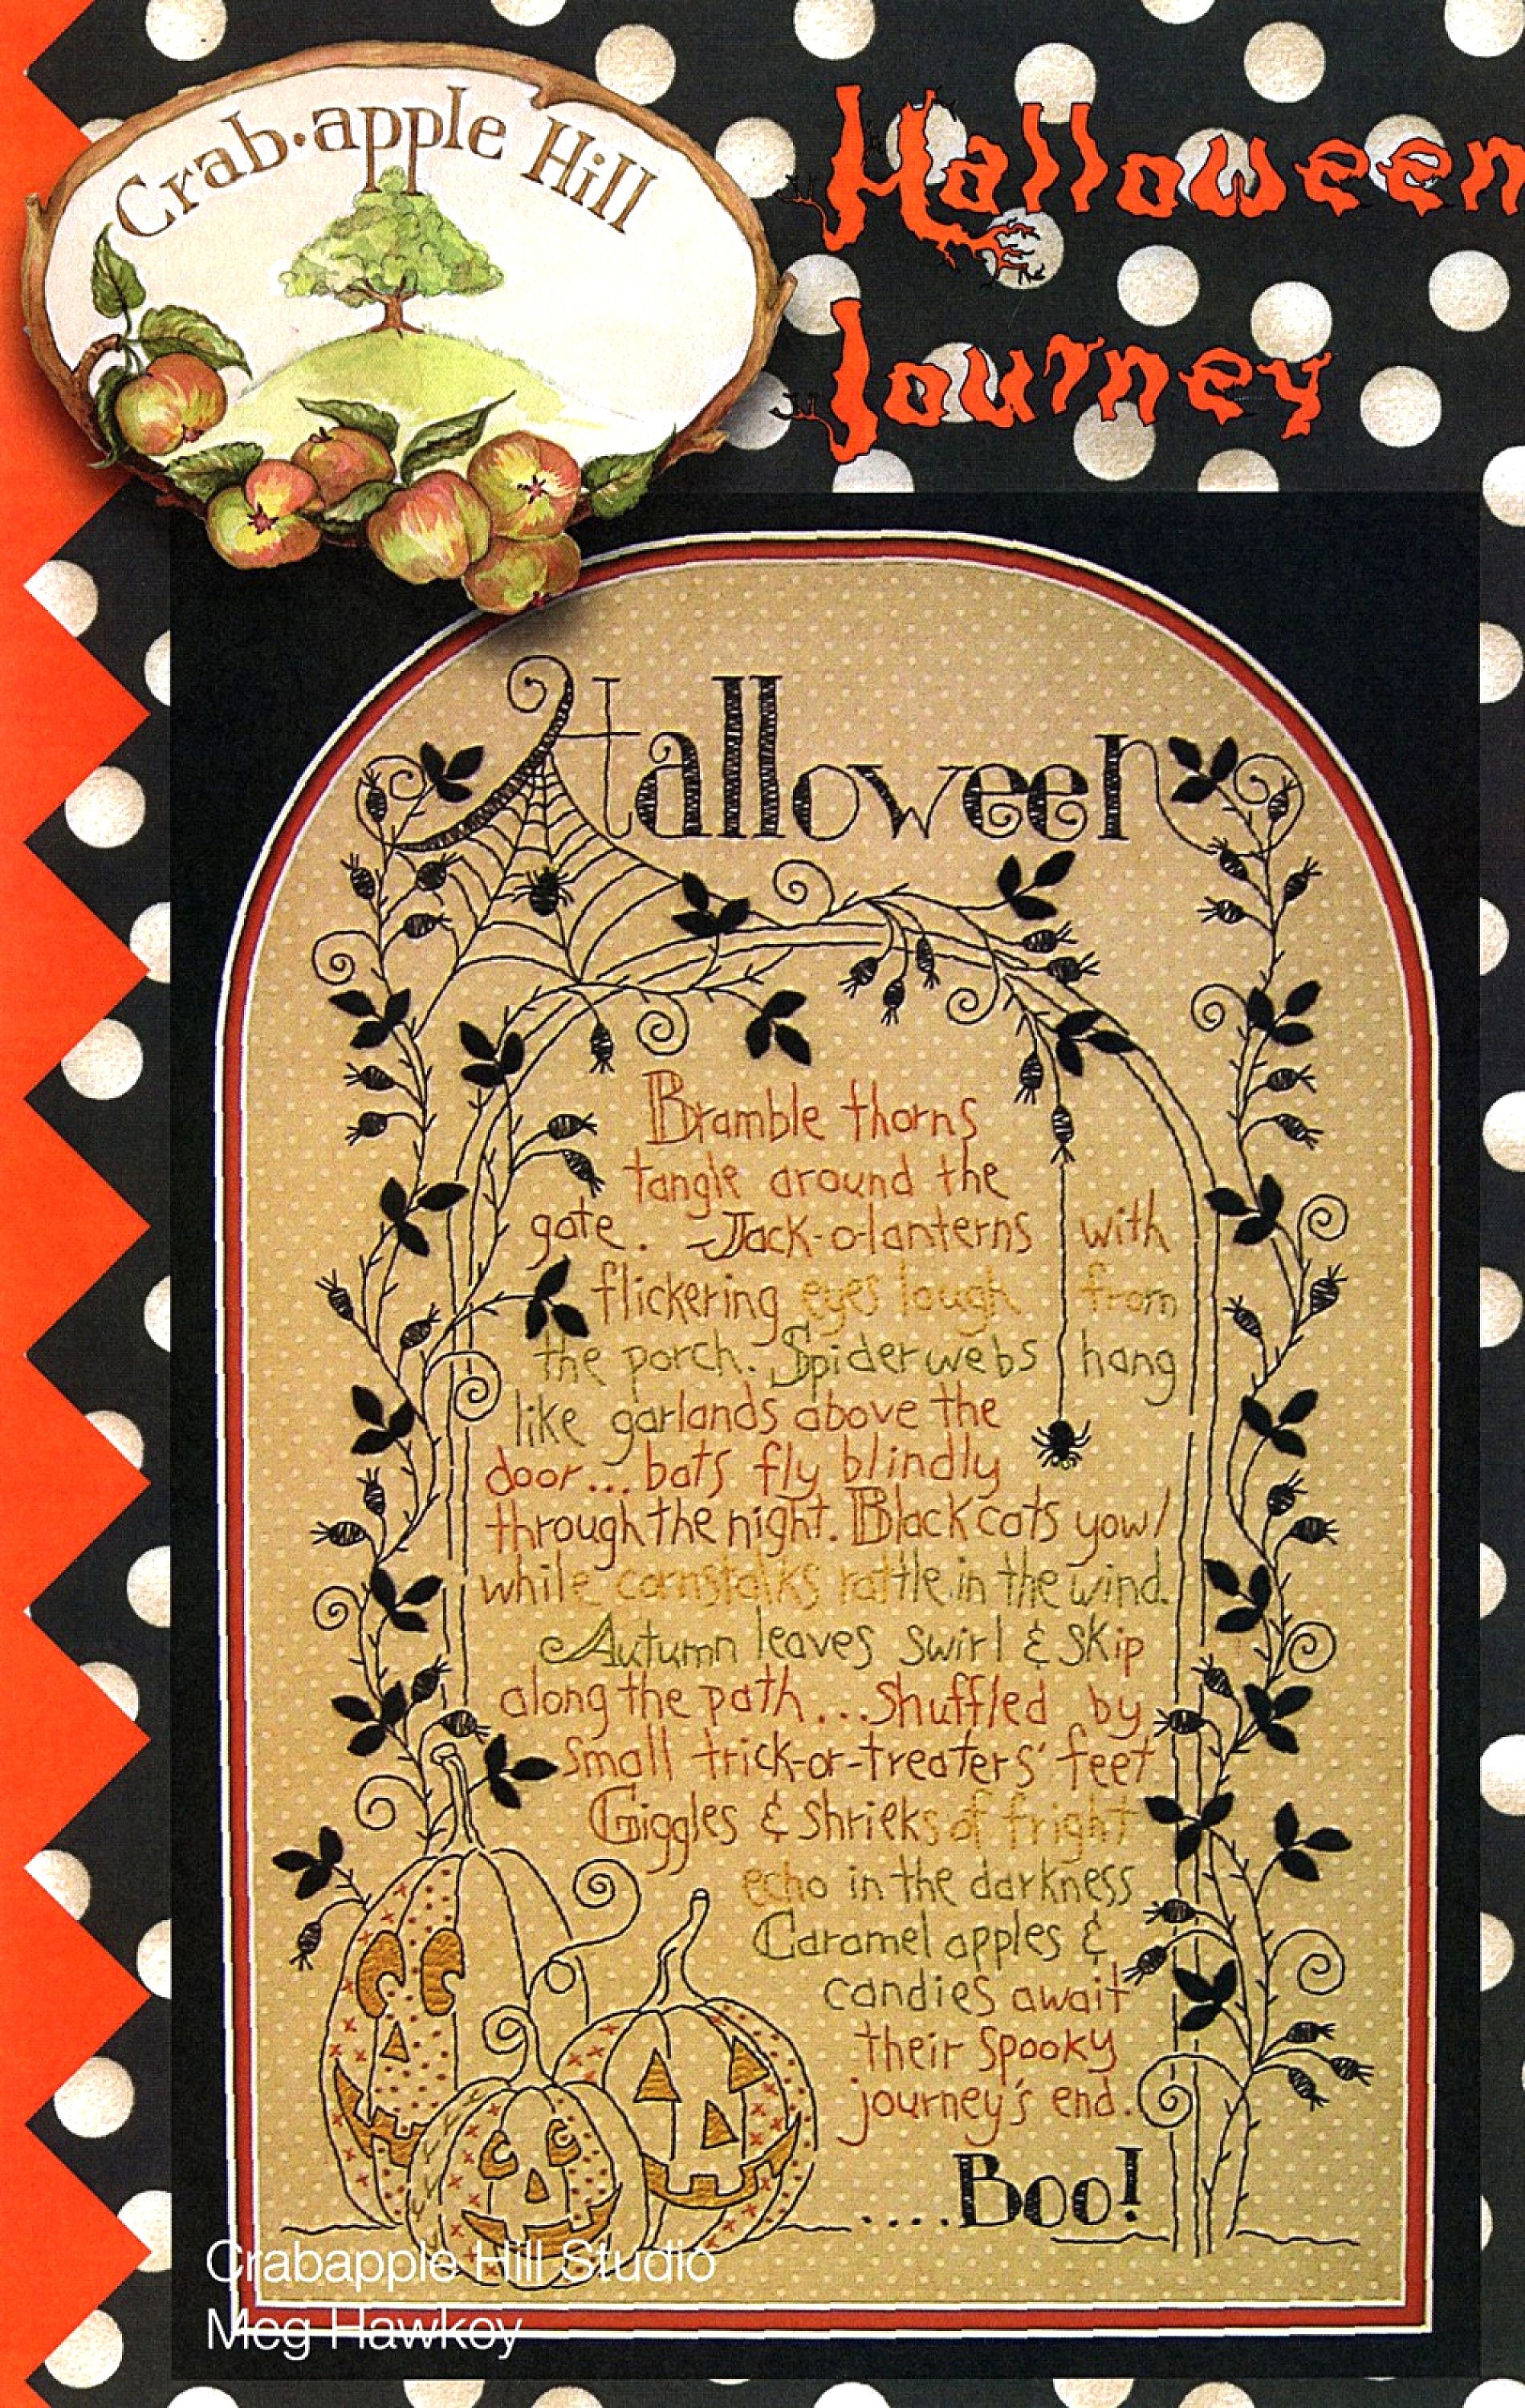 Crab·apple Hill
Halloween
Journey
Halloween
Bramble thorns
tangle around the
gate. Jack-o-lanterns with
flickering eyes laugh from
the porch. Spiderwebs hang
like garlands above the
door...bats fly blindly
through the night. Black cats yowl
while cornstalks rattle in the wind.
Autumn leaves swirl & skip
along the path...Shuffled by
small trick-or-treaters' feet
Giggles & shrieks of fright
echo in the darkness
Caramel apples &
candies await
their spooky
journey's end.
....Boo!
Crabapple Hill Studio
Meg Hawkey